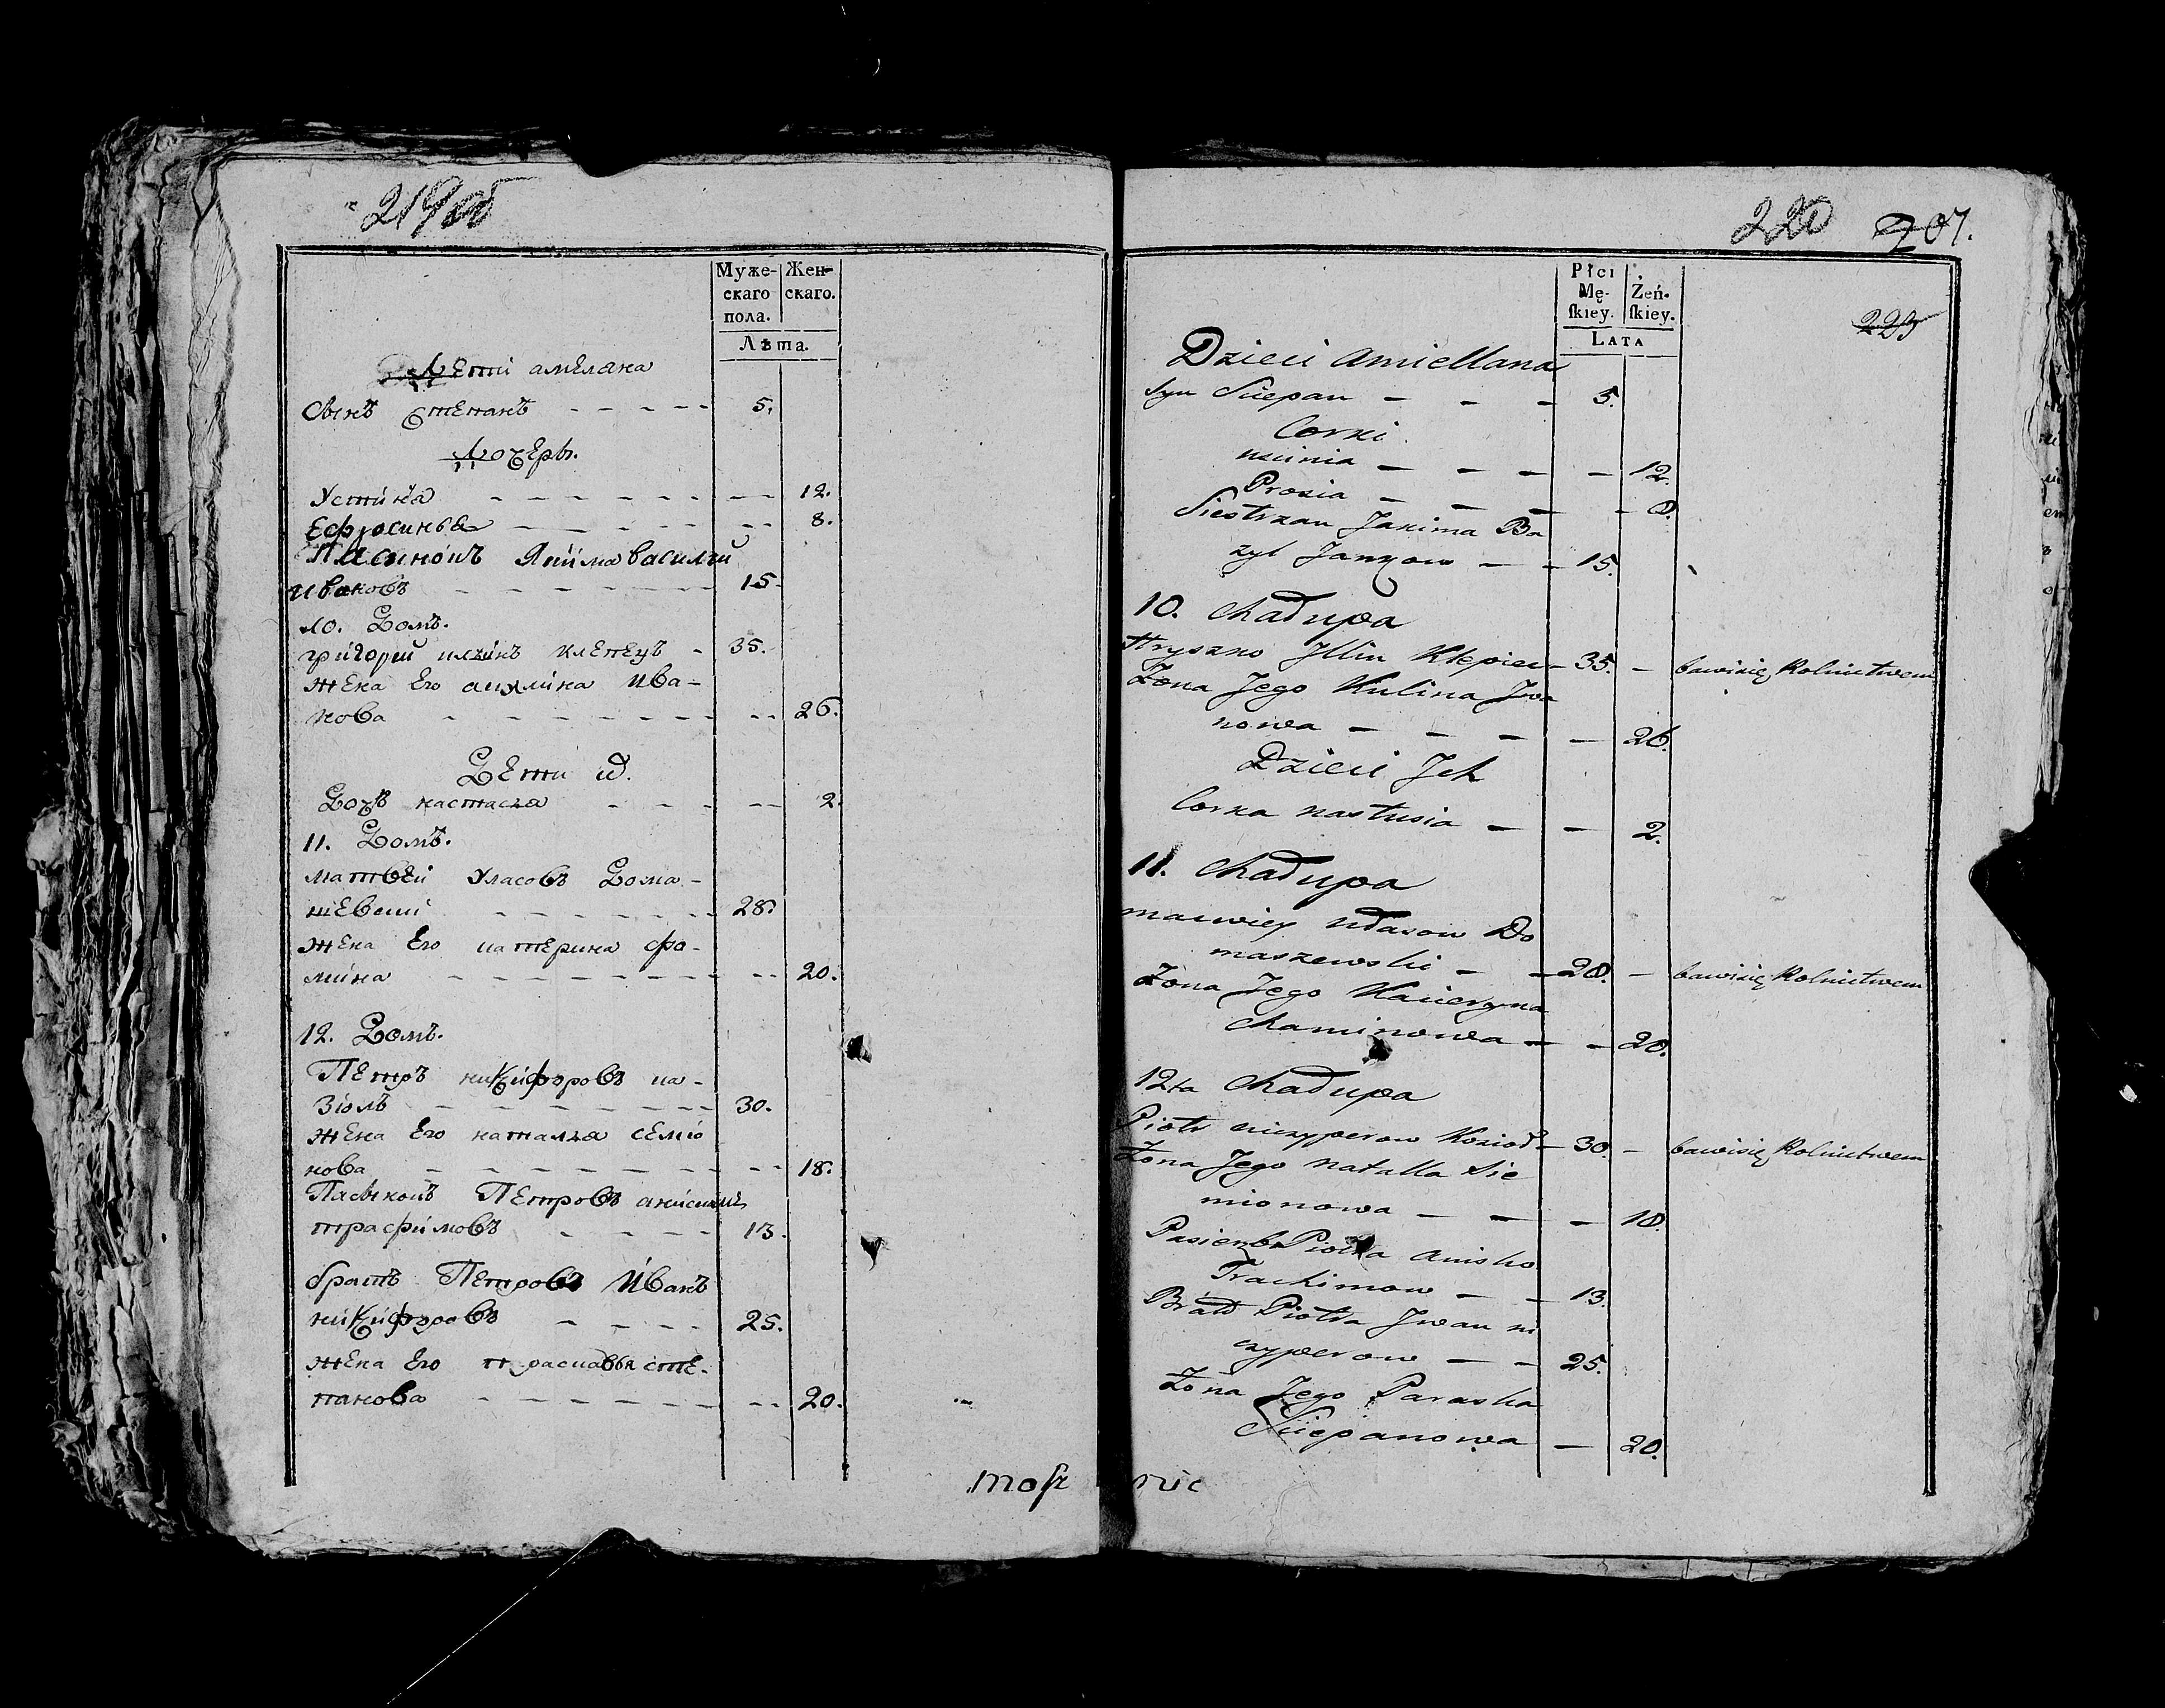 219об
Муже-
скаго
пола.
Жен-
скаго.
Лѣта.
Дети амеляна
Сынъ Степанъ - - - - - 5.
Дочеры.
Устина - - - - - - - - 12.
Ефросинья - - - - - - - 8.
Пасинокъ Якима василий
ивановъ - - - - - - 15
10. Домъ.
григорий илинъ клепецъ - 35.
жена Его акулина Ива-
нова - - - - - - - - 26.
Дети их.
Дочь настася - - - - - 2.
11. Домъ.
матвей Уласовъ Дома-
шевски - - - - - - 28.
жена Его катерина фо-
мина - - - - - - - - - 20.
12. Домъ.
Петръ никифоровъ ка-
зіолъ - - - - - - - 30.
жена Его наталя семіо
нова - - - - - - - - - 18.
Пасынокъ Петровъ анисимъ
трафимовъ - - - - 13.
братъ Петровъ Иванъ
никифоровъ - - - - 25.
жена Его прасковья сте-
панова - - - - - - - - 20.
mosz
220 207.
Płci
Mę-
ſkiey.
Żeń-
ſkiey.
LATA
223
Dzieci amiellana
syn Sciepan - - - 5.
Corki
uscinia - - - - 12.
Prosia - - - - 8.
Siestrzan Jakima Ba
zyl Jankow - - 15.
10. Chałupa
Hryszko Illin Klepiec - 35. - bawisię Rolnictwem
Żona Jego Kulina Jwa
nowa - - - - 26.
Dzieci Jch
Corka nastusia - - 2.
11. Chałupa
maciwiey ułasow Do
maszewski - - 28. - bawisię Rolnictwem
Żona Jego Kacieryna
Chaminowa - - 20.
12ta Chałupa
Piotr niczyperow Kozioł - 30. - bawisię Rolnictwem
Żona Jego natalla Sie
mionowa - - - 18.
Pasierb Piotra anisko
Trachimow - - 13.
Bratt Piotra Jwan ni
czyperow - - 25.
Żona Jego Paraska
Sciepanowa - 20.
nic